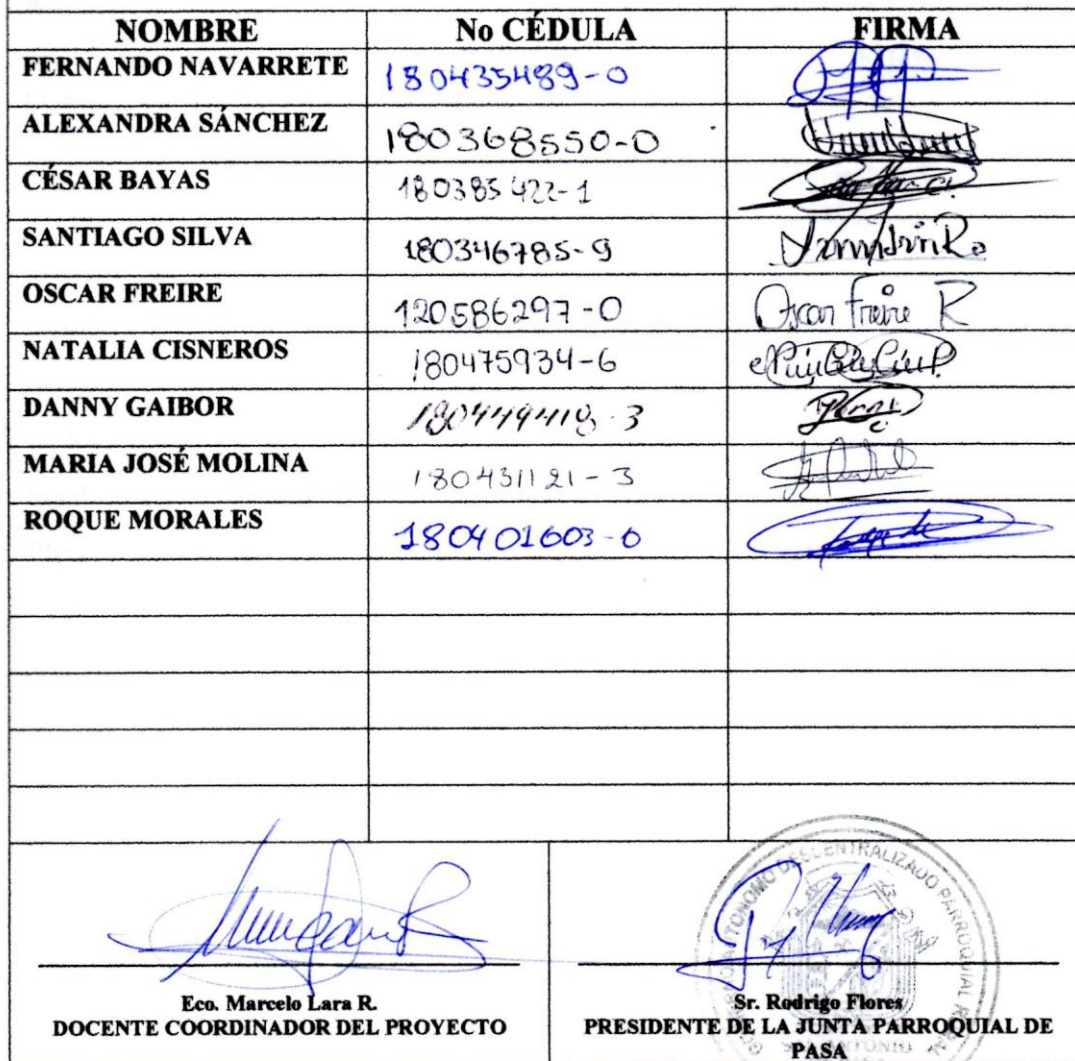 NOMBRE No CÉDULA FIRMA
FERNANDO NAVARRETE 180435489-0
ALEXANDRA SÁNCHEZ 180368550-0
CÉSAR BAYAS 180385422-1
SANTIAGO SILVA 180346785-9
OSCAR FREIRE 120586297-0 Oscar Freire R
NATALIA CISNEROS 180475934-6
DANNY GAIBOR
MARIA JOSÉ MOLINA 180431121-3
ROQUE MORALES 180401603-6
DESCENTRALIZADO PARROQUIAL RURAL
Eco. Marcelo Lara R.
DOCENTE COORDINADOR DEL PROYECTO
Sr. Rodrigo Flores
PRESIDENTE DE LA JUNTA PARROQUIAL DE
PASA